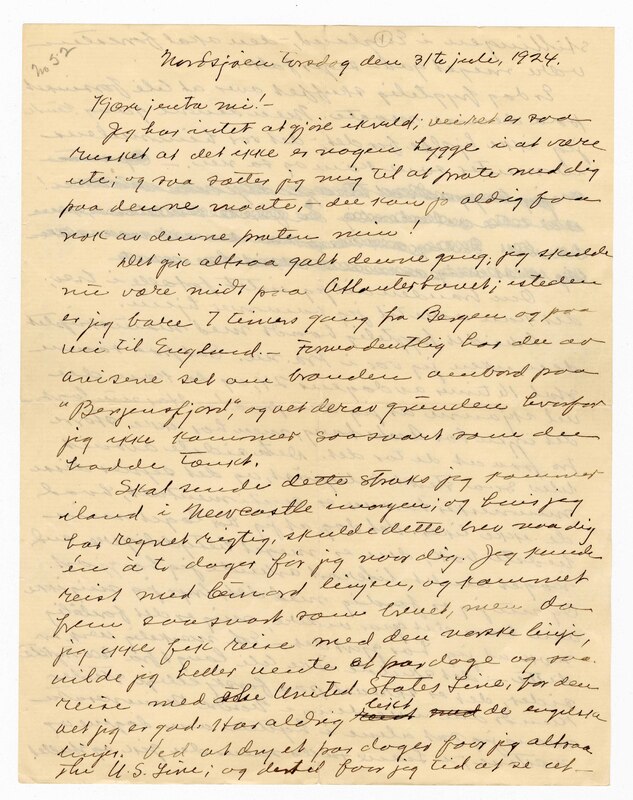 No 52
①
Nordsjøen torsdag den 31te juli, 1924.
Kjære jenta mi!-
Jeg har intet at gjøre ikveld; veiret er saa
rusket at det ikke er nogen hygge i at være
ute; og saa sætter jeg mig til at prate med dig
paa denne maate,- du kan jo aldrig faa
nok av denne praten min!
Det gik altsaa galt denne gang; jeg skulde
nu være midt paa Atlanterhavet; isteden
er jeg bare 7 timers gang fra Bergen og paa
vei til England.- Formodentlig har du av
avisene set om branden ombord paa
"Bergensfjord", og vet derav grunden hvorfor
jeg ikke kommer saasnart som du
hadde tænkt.
Skal sende dette straks jeg kommer
iland i Newcastle imorgen; og hvis jeg
har regnet rigtig, skulde dette brev naa dig
en à to dager før jeg naar dig. Jeg kunde
reist med Cunard linjen, og kommet
frem saasnart som brevet, men da
jeg ikke fik reise med den norske linje,
vilde jeg heller vente et par dage og saa
reise med the United States Line, for den
vet jeg er god. Har aldrig likt de engelske
linjer. Ved at drøie et par dager faar jeg altsaa
the U.S. Line; og dertil faar jeg tid at se et-